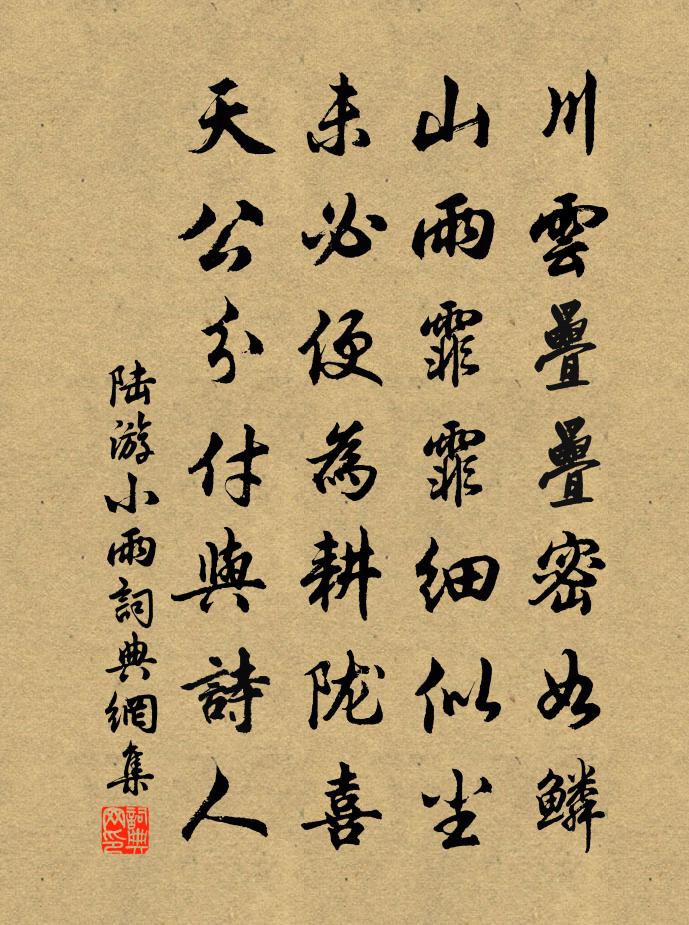 川雲疊疊密如鱗
山雨霏霏細似尘
未必便為耕陇喜
天公分付與詩人
陆游小雨詞典網集
詞典網印